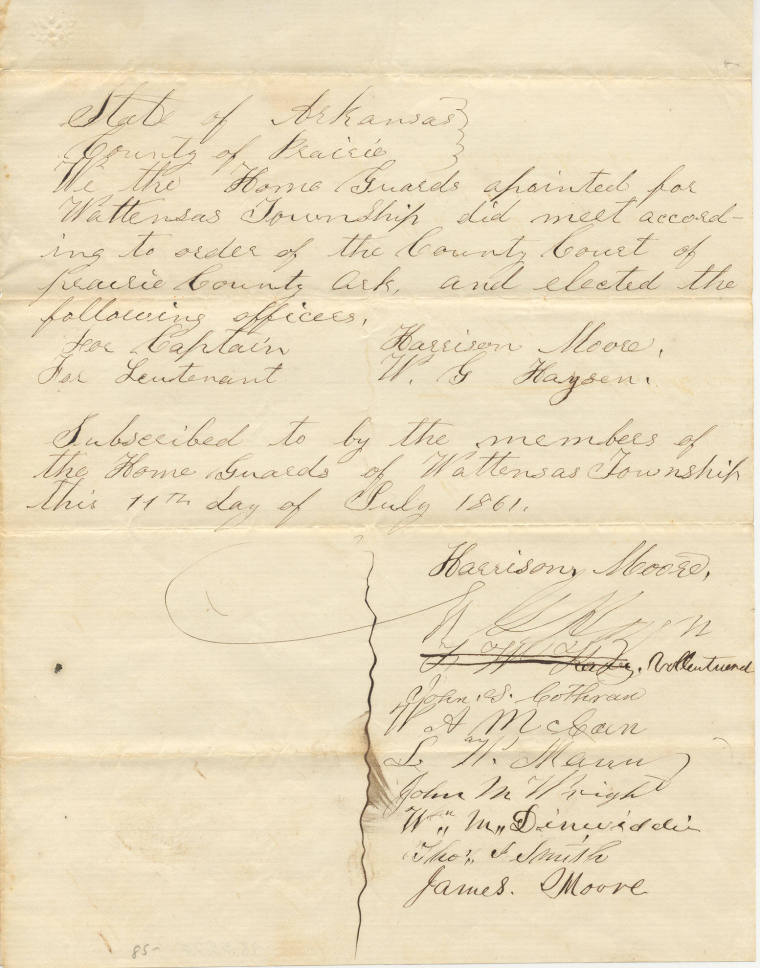 State of Arkansas }
County of Prairie }
We the Home Guards apointed for
Wattensas Township did meet accord-
ing to order of the County Court of
prairie County Ark, and elected the
following officers.
For Captain Harrison Moore.
For Leutenant W. G Haysen.
Subscribed to by the members of
the Home Guards of Wattensas Township
this 11th day of July 1861.
Harrison Moore.
W G
John. S. Cothran
W A McCain
L. W. Mann
John M Wright
W" M" Dinwiddie
Thos. J Smith
James. Moore
85-